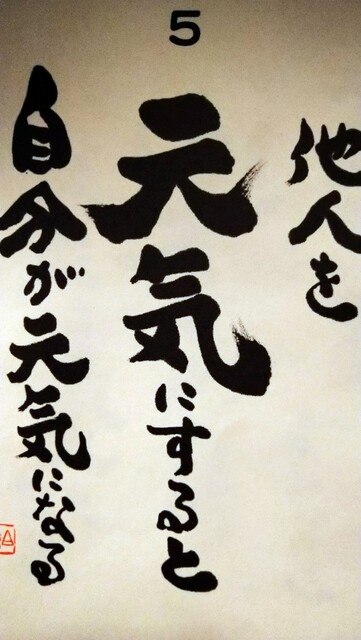 5
他人を
元気にすると
自分が元気になる